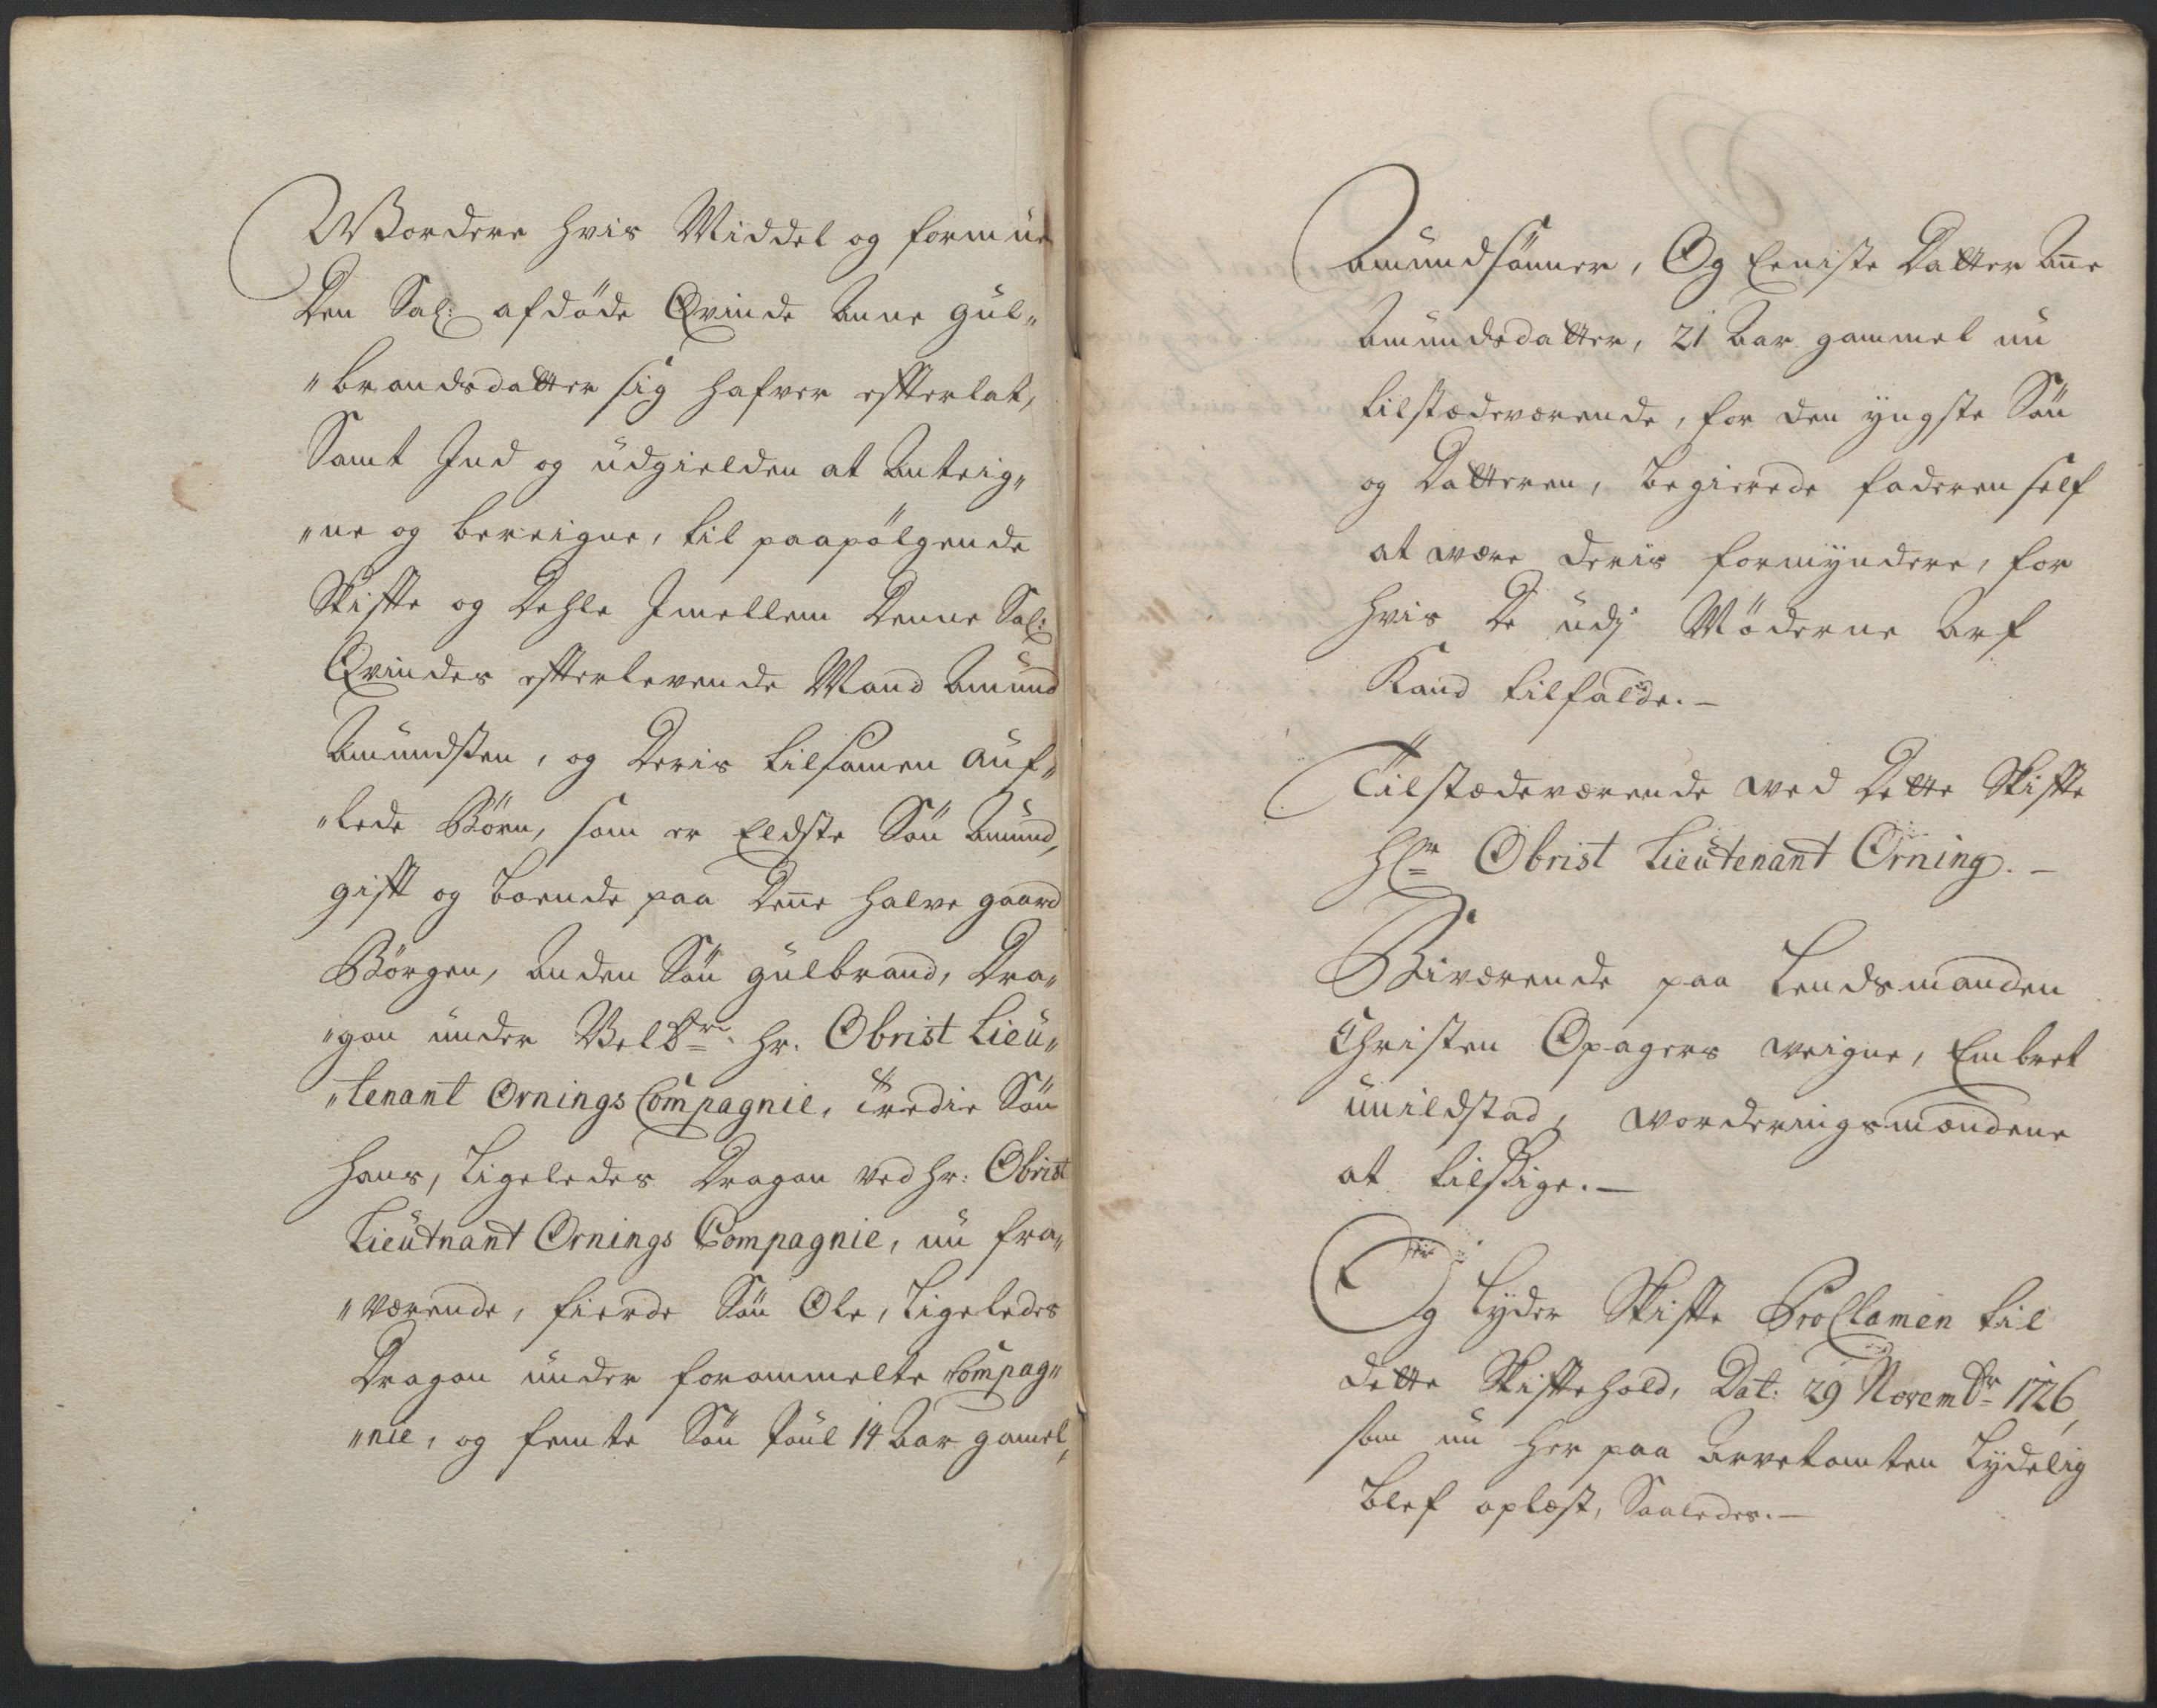 Wordere hvis Middel og formue
Den Sal: afdöde Qvinde Anne Gul„
„brandsdatter sig hafver efterlat,
Samt Ind og udgielden at Anteig„
„ne og bereigne, til paafölgende
Skifte og Dehle Imellem Denne Sal:
Qvindes efterlevende Mand Amund
Amundsen, og Deris tilsamen auf„
„lede Börn, som er Eldste Sön Amund,
gift og boende paa Denne halve gaard
Börgen, Anden Sön Gulbrand, Dra„
„gon under Velbr. Hr. Obrist Lieu„
„tenant Ornings Compagnie, Tredie Sön
Hans, Ligeledes Dragon ved Hr: Obrist
Lieutnant Ornings Compagnie, nu fra„
„værende, fierde Sön Ole, Ligeledes
Dragon under forommelte Compag„
„nie, og femte Sön Poul 14 Aar gamel,
Amundsönner, Og Eeniste Datter Anne
Amundsdatter, 21 Aar gammel nu
tilstædeværende, for den yngste Sön
og Datteren, begierede faderen self
at være deris formyndere, for
hvis De udj Möderne Arf
Kand tilfalde.–
Tilstædeværende ved Dette Skifte
Hr Obrist Lieutenant Orning.–
Biværende paa Lendsmanden
Christen Opagers veigne, Embret
unildstad, vorderingsmændene
at tilsige.–
Og Lyder Skifte Proclamen til
dette Skiftehold, Dat: 29 Novembr 1726,
som nu her paa Arvetomten Lydelig
blef oplæst, Saaledes.–